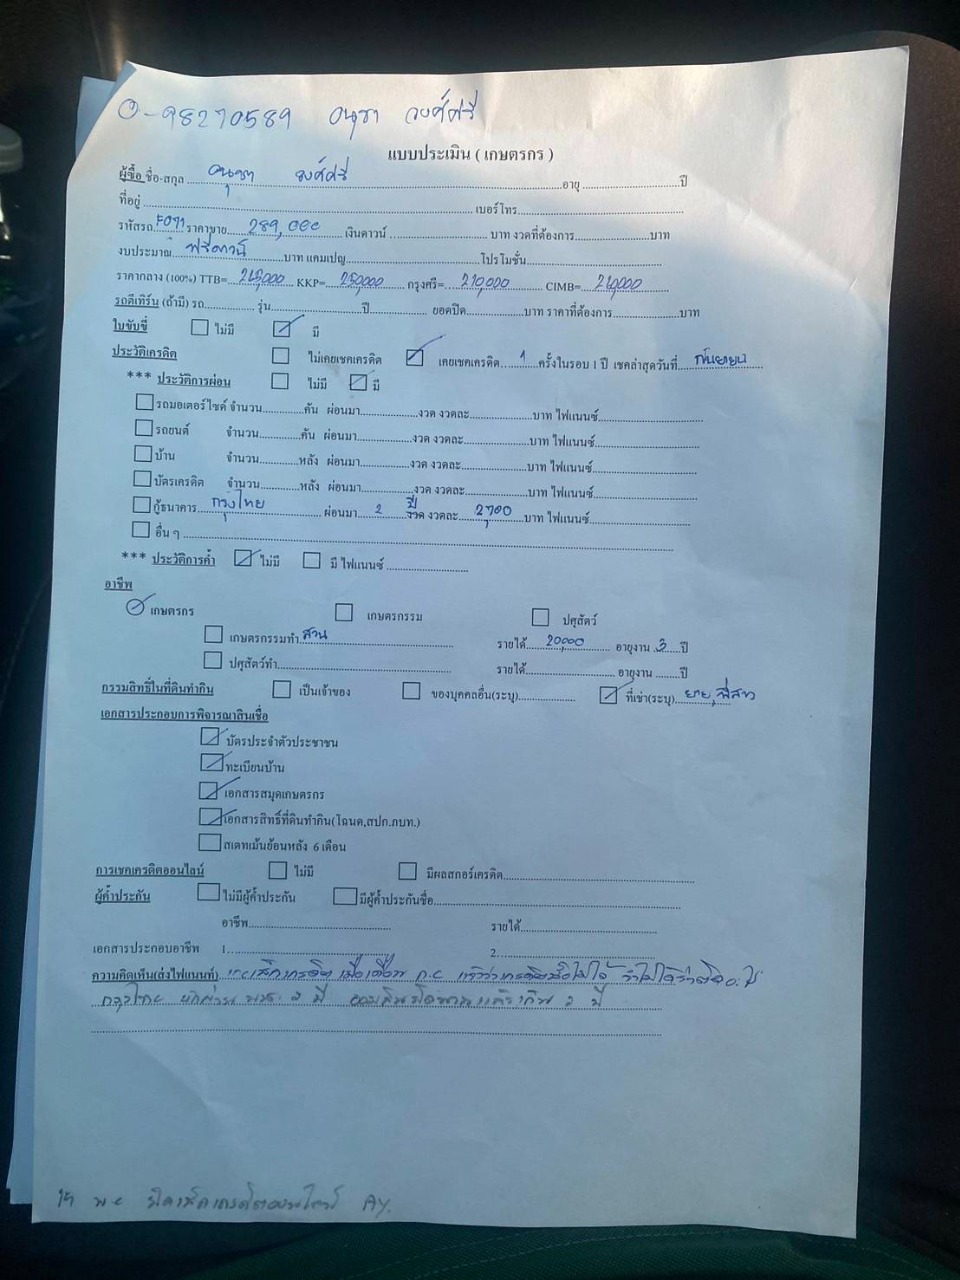 0-98270589 อนุชา วงศ์ศรี
แบบประเมิน ( เกษตรกร )
ผู้ซื้อ ชื่อ-สกุล อนุชา วงศ์ศรี อายุ ปี
ที่อยู่ เบอร์โทร
รหัสรถ F071 ราคาขาย 289,000 เงินดาวน์ บาท งวดที่ต้องการ บาท
งบประมาณ ฟรีดาวน์ บาท แคมเปญ โปรโมชั่น
ราคากลาง (100%) TTB= KKP= 250,000 กรุงศรี= 210,000 CIMB=
รถตีเทิร์น (ถ้ามี) รถ รุ่น ปี ยอดปิด บาท ราคาที่ต้องการ บาท
ใบขับขี่ ไม่มี มี
ประวัติเครดิต ไม่เคยเชคเครดิต เคยเชคเครดิต 1 ครั้งในรอบ 1 ปี เชคล่าสุดวันที่ กันยายน
*** ประวัติการผ่อน ไม่มี มี
รถมอเตอร์ไซค์ จำนวน คัน ผ่อนมา งวด งวดละ บาท ไฟแนนซ์
รถยนต์ จำนวน คัน ผ่อนมา งวด งวดละ บาท ไฟแนนซ์
บ้าน จำนวน หลัง ผ่อนมา งวด งวดละ บาท ไฟแนนซ์
บัตรเครดิต จำนวน หลัง ผ่อนมา งวด งวดละ บาท ไฟแนนซ์
กู้ธนาคาร กรุงไทย ผ่อนมา 2 ปี งวด งวดละ 2,700 บาท ไฟแนนซ์
อื่น ๆ
*** ประวัติการค้ำ ไม่มี มี ไฟแนนซ์
อาชีพ
เกษตรกร เกษตรกรรม ปศุสัตว์
เกษตรกรรมทำ สวน รายได้ 20,000 อายุงาน 3 ปี
ปศุสัตว์ทำ รายได้ อายุงาน ปี
กรรมสิทธิ์ในที่ดินทำกิน เป็นเจ้าของ ของบุคคลอื่น(ระบุ) ที่เช่า(ระบุ) ยาย, พี่สาว
เอกสารประกอบการพิจารณาสินเชื่อ
บัตรประจำตัวประชาชน
ทะเบียนบ้าน
เอกสารสมุดเกษตรกร
เอกสารสิทธิ์ที่ดินทำกิน(โฉนด,สปก.ภบท.)
สเตทเม้นย้อนหลัง 6 เดือน
การเชคเครดิตออนไลน์ ไม่มี มีผลสกอร์เครดิต
ผู้ค้ำประกัน ไม่มีผู้ค้ำประกัน มีผู้ค้ำประกันชื่อ
อาชีพ รายได้
เอกสารประกอบอาชีพ 1. 2.
ความคิดเห็น(ส่งไฟแนนท์) เมื่อเดือน ก.ย
กรุงไทย 2 ปี 2 ปี
AY.